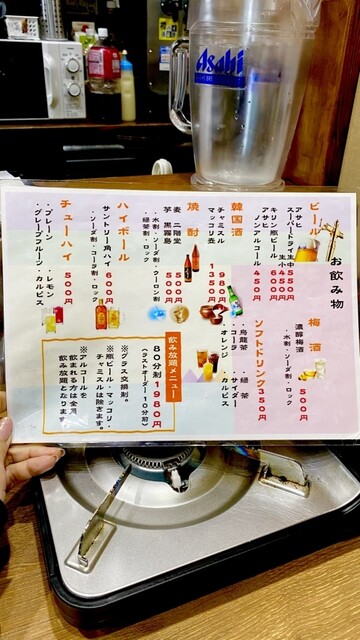 Asahi
お飲み物
ビール
アサヒ
スーパードライ生中 550円
生小 450円
キリン瓶ビール 600円
アサヒ
ノンアルコール 450円
韓国酒
チャミスル
マッコリ壺
焼酎
麦 二階堂 500円
芋 黒霧島 500円
・水割・ソーダ割・ウーロン割
・緑茶割・ロック
ハイボール
サントリー角ハイ 600円
・ソーダ割・コーラ割・ロック
チューハイ 500円
・プレーン ・レモン
・グレープフルーツ ・カルピス
梅酒
濃醇梅酒 500円
・水割・ソーダ割・ロック
ソフトドリンク 350円
・烏龍茶 ・緑茶
・コーラ ・サイダー
・オレンジ ・カルピス
飲み放題メニュー
80分制 1980円
(ラストオーダー10分前)
※グラス交換制。
※瓶ビール・マッコリ
チャミスルは除きます。
※アルコールを
飲まれる方は全員
飲み放題となります